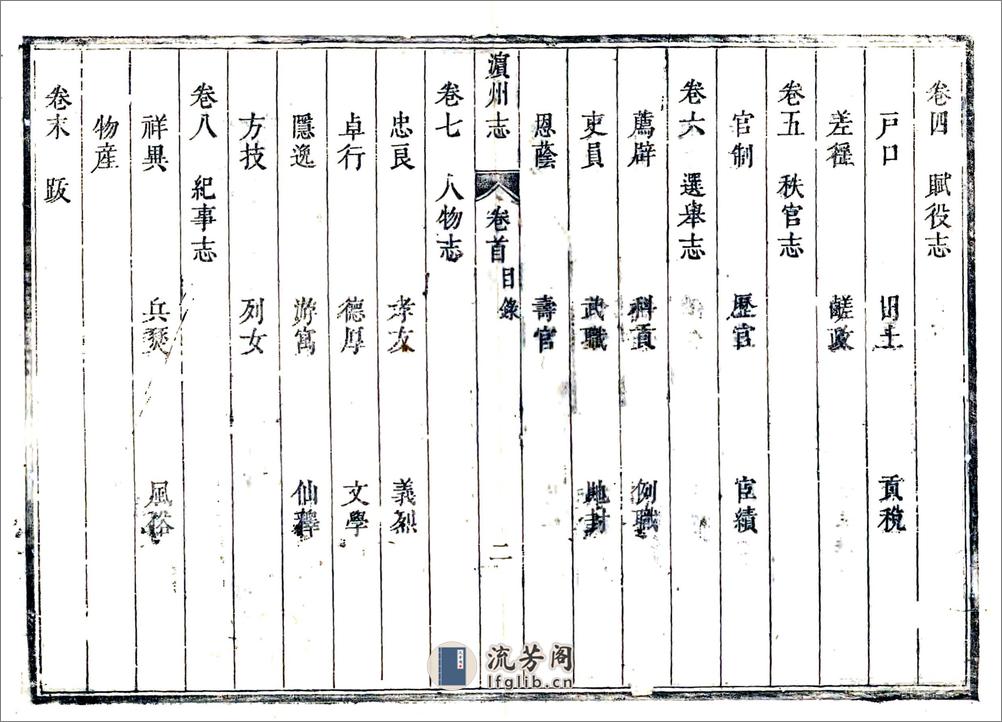 卷四 賦役志
戸口 田土 貢稅
差徭 鹺政
卷五 秩官志
官制 歷官 宦績
卷六 選舉志
薦辟 科貢 例職
吏員 武職 貤封
恩蔭 壽官
濵州志 卷首 目錄 二
卷七 人物志
忠良 孝友 義烈
卓行 德厚 文學
隱逸 游寓 仙釋
方技 列女
卷八 紀事志
祥異 兵燹 風俗
物産
卷末 跋
流芳阁
lfglib.cn